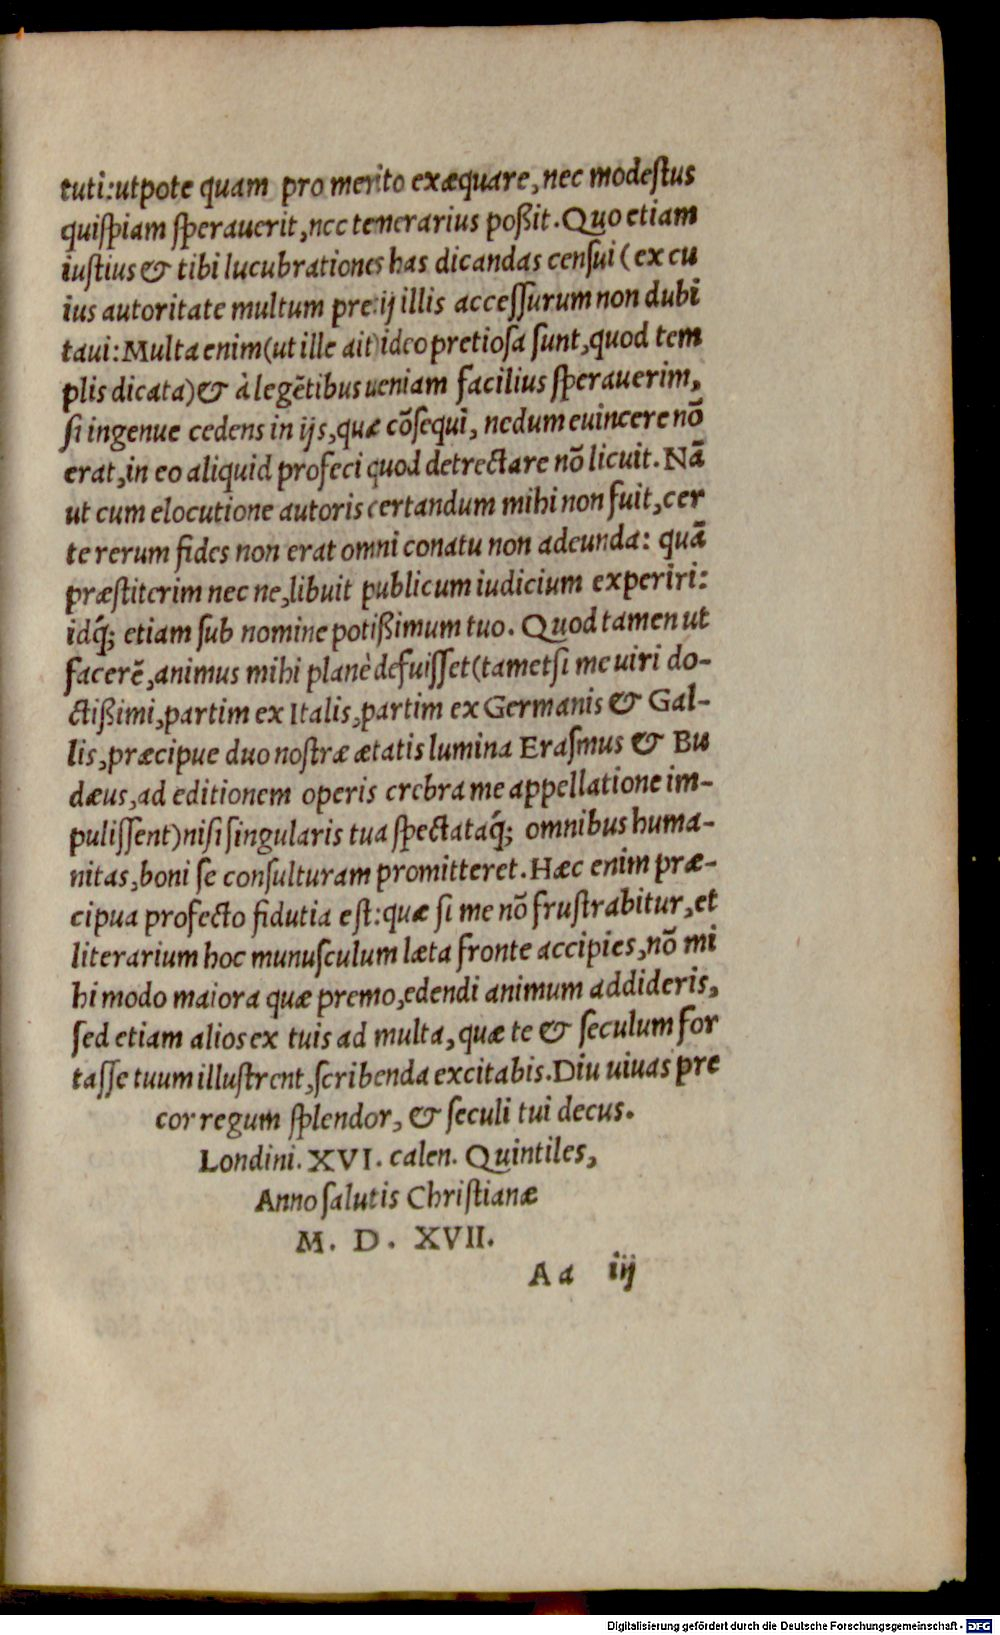 tuti:utpote quam pro merito exæquare, nec modeſtus
quiſpiam ſperauerit, nec temerarius poßit. Quo etiam
iuſtius & tibi lucubrationes has dicandas cenſui (ex cu
ius autoritate multum precij illis acceſſurum non dubi
taui: Multa enim (ut ille ait) ideo pretioſa ſunt, quod tem
plis dicata) & à legẽtibus ueniam facilius ſperauerim,
ſi ingenue cedens in ijs, quæ cõſequi, nedum euincere nõ
erat, in eo aliquid profeci quod detrectare nõ licuit. Nã
ut cum elocutione autoris certandum mihi non fuit, cer
te rerum fides non erat omni conatu non adeunda: quã
præſtiterim nec ne, libuit publicum iudicium experiri:
idq́; etiam ſub nomine potißimum tuo. Quod tamen ut
facerẽ, animus mihi planè defuiſſet (tametſi me uiri do-
ctißimi, partim ex Italis, partim ex Germanis & Gal-
lis, præcipue duo noſtræ ætatis lumina Eraſmus & Bu
dæus, ad editionem operis crebra me appellatione im-
puliſſent) niſi ſingularis tua ſpectataq́; omnibus huma-
nitas, boni ſe conſulturam promitteret. Hæc enim præ-
cipua profecto fidutia eſt: quæ ſi me nõ fruſtrabitur, et
literarium hoc munuſculum læta fronte accipies, nõ mi
hi modo maiora quæ premo, edendi animum addideris,
ſed etiam alios ex tuis ad multa, quæ te & ſeculum for
taſſe tuum illuſtrent, ſcribenda excitabis. Diu uiuas pre
cor regum ſplendor, & ſeculi tui decus.
Londini. XVI. calen. Quintiles,
Anno ſalutis Chriſtianæ
M. D. XVII.
Aa iij
Digitalisierung gefördert durch die Deutsche Forschungsgemeinschaft - DFG